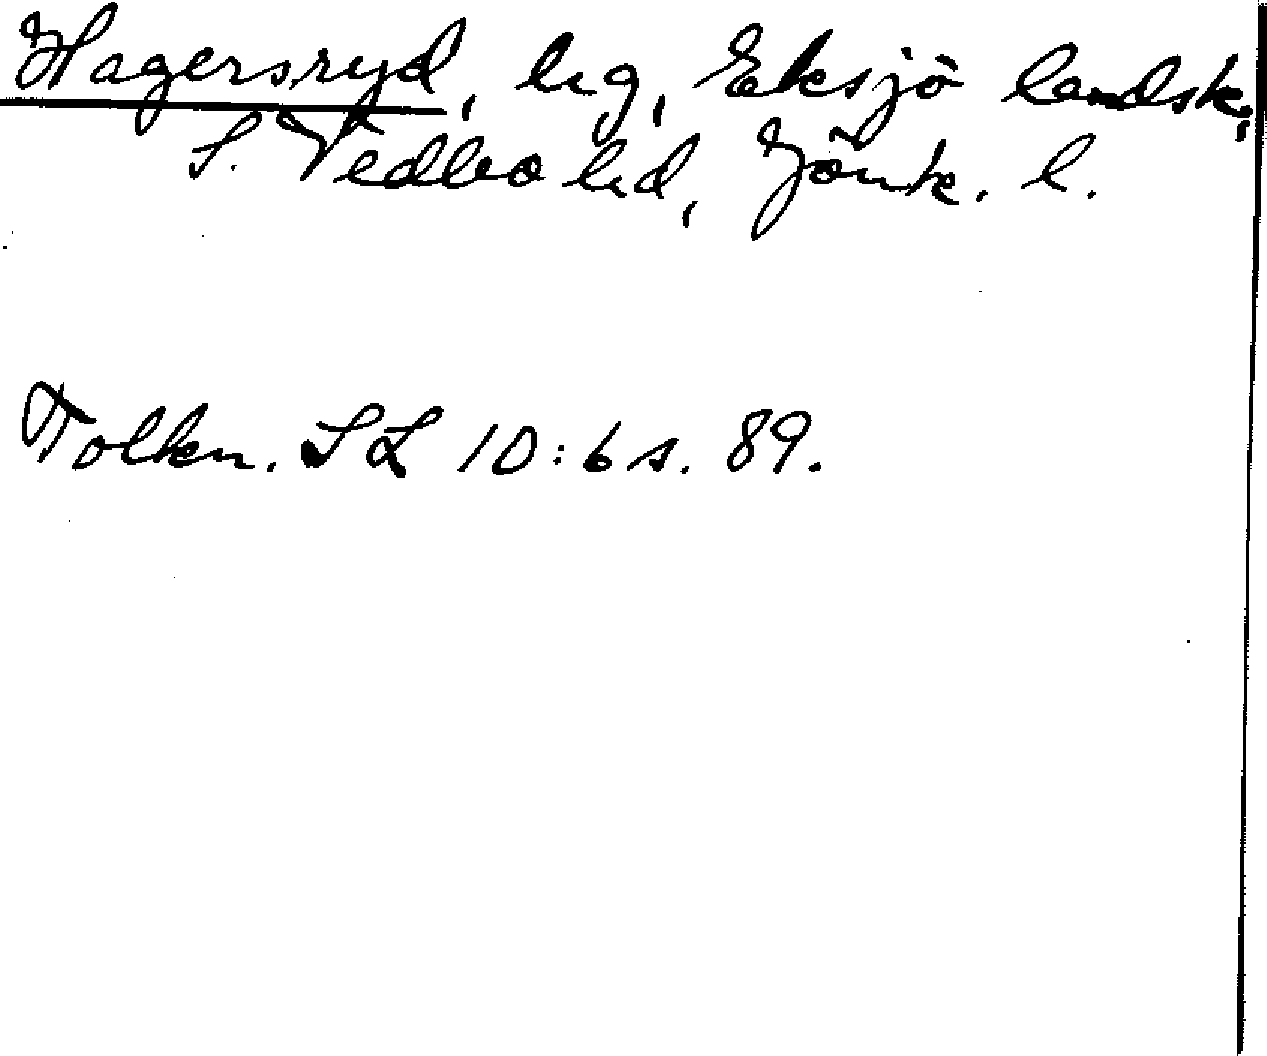 Hagersryd, hg, Eksjö landsk.,
S. Vedbo hd, Jönk. l.
Tolkn. SL 10:6 s. 89.